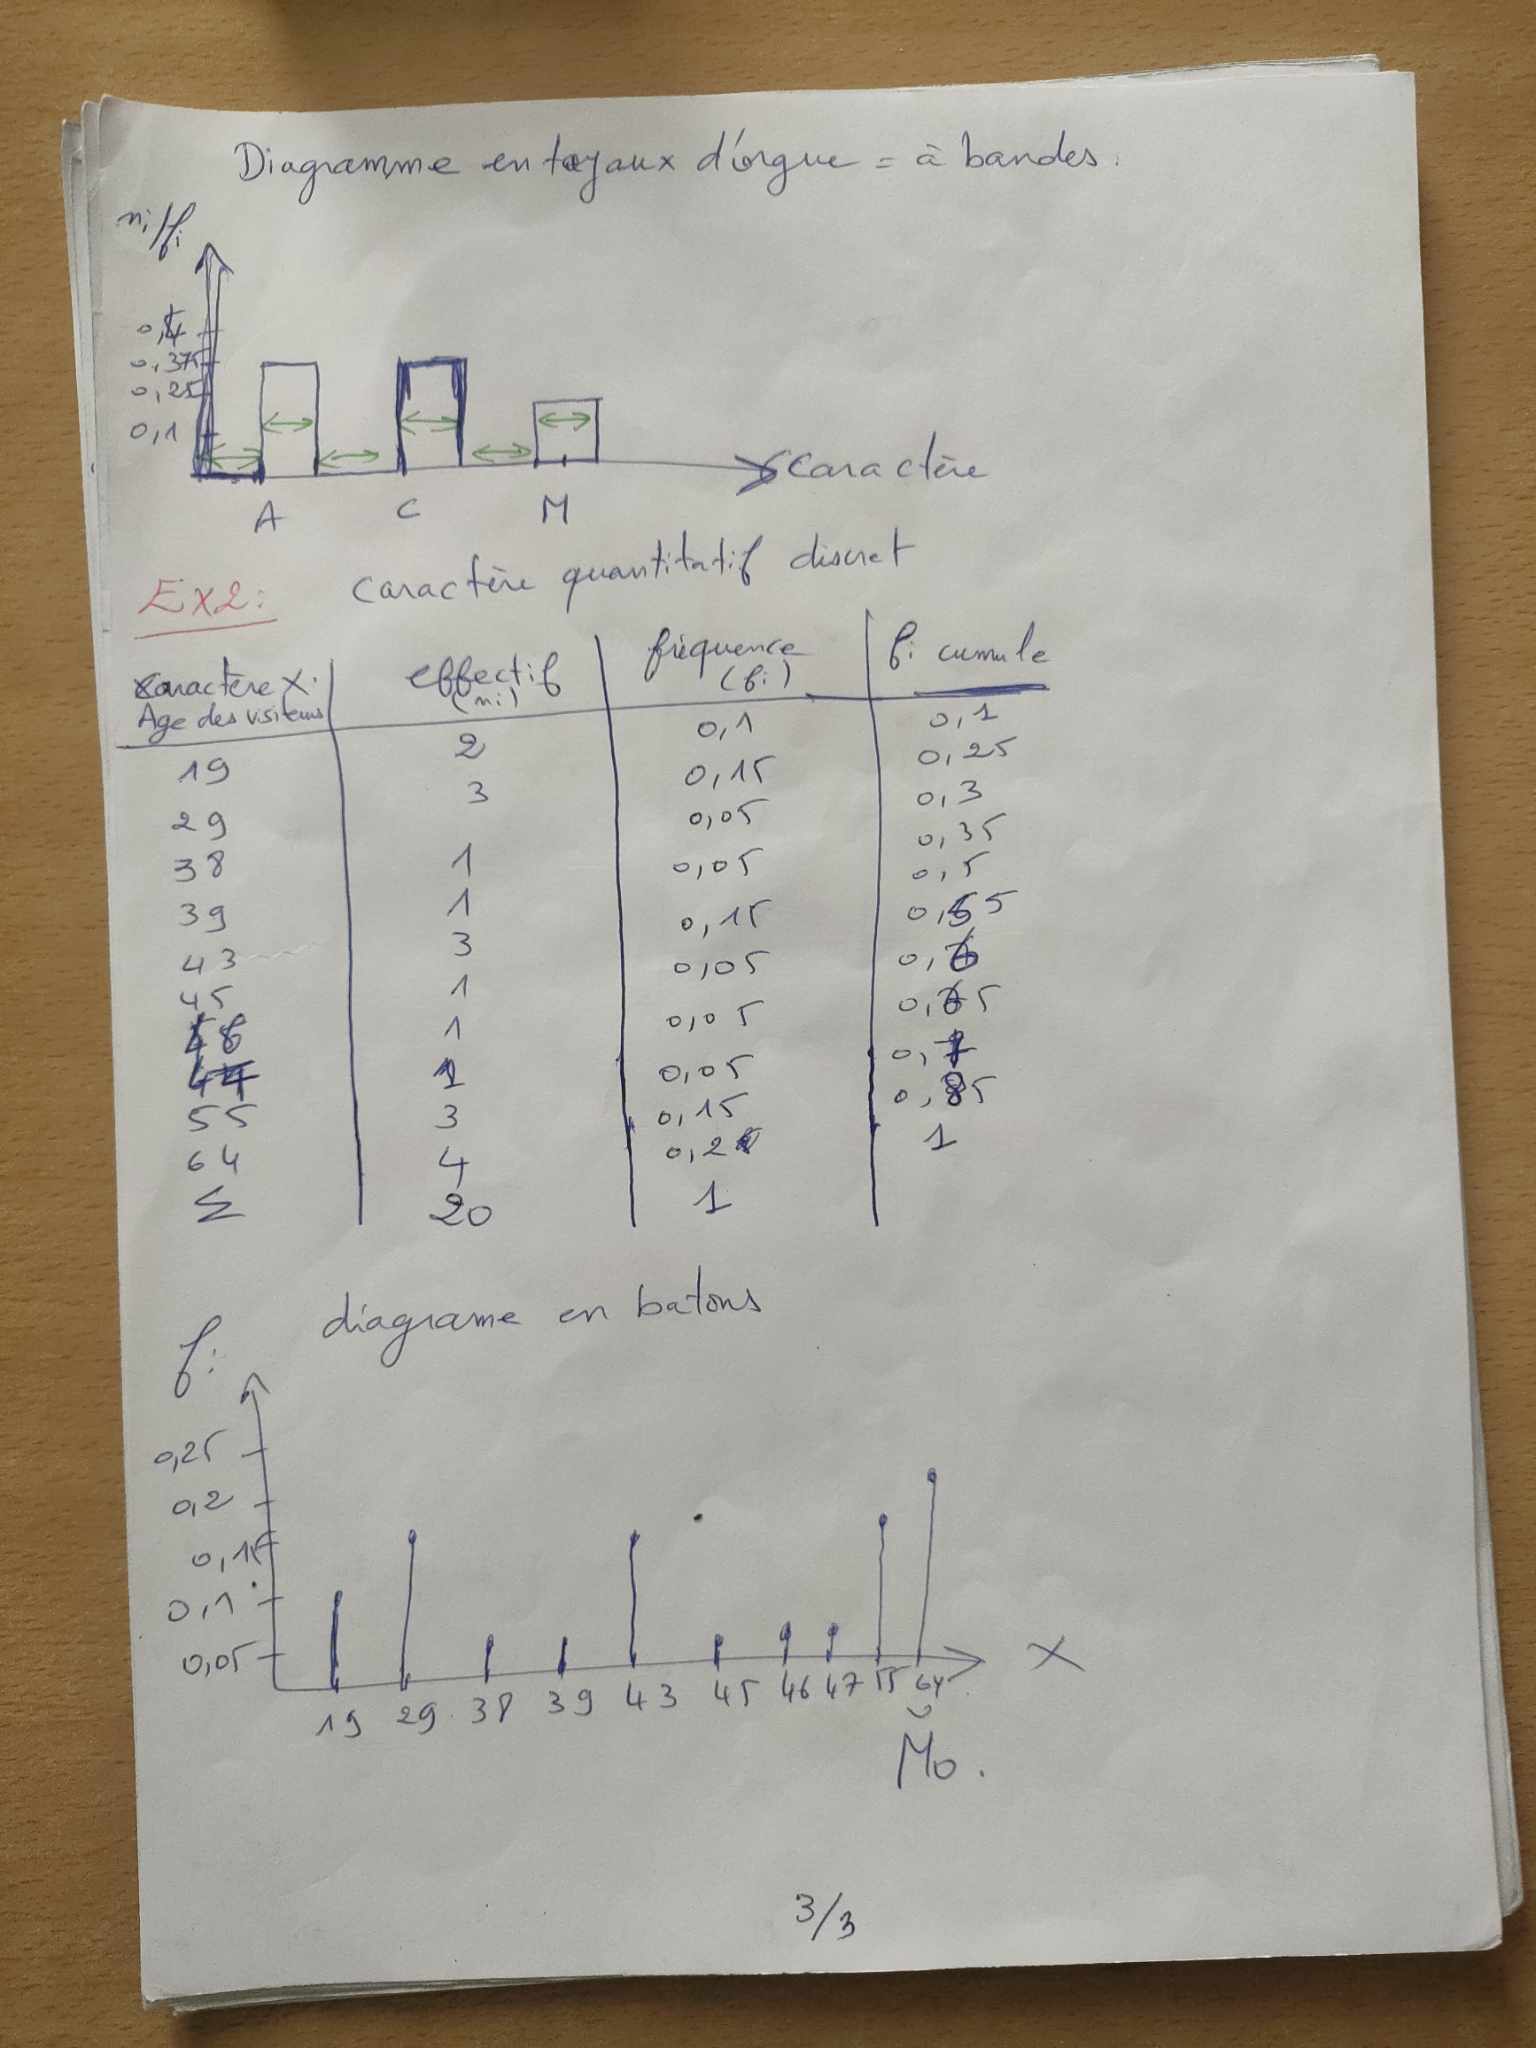 Diagramme en tuyaux d'orgue = à bandes.
ni/fi
0,4
0,375
0,25
0,1
caractère
A C M
Ex2: caractère quantitatif discret
caractère X. effectif (ni) fréquence (fi) fi cumule
Age des visiteurs
19 2 0,1 0,1
29 3 0,15 0,25
38 1 0,05 0,3
39 1 0,05 0,35
43 3 0,15 0,5
45 1 0,05 0,55
46 1 0,05 0,6
47 1 0,05 0,65
55 3 0,15 0,85
64 4 0,2 1
Σ 20 1
0,7
diagrame en batons
fi
0,25
0,2
0,15
0,1
0,05
X
19 29 38 39 43 45 46 47 55 64
Mo.
3/3